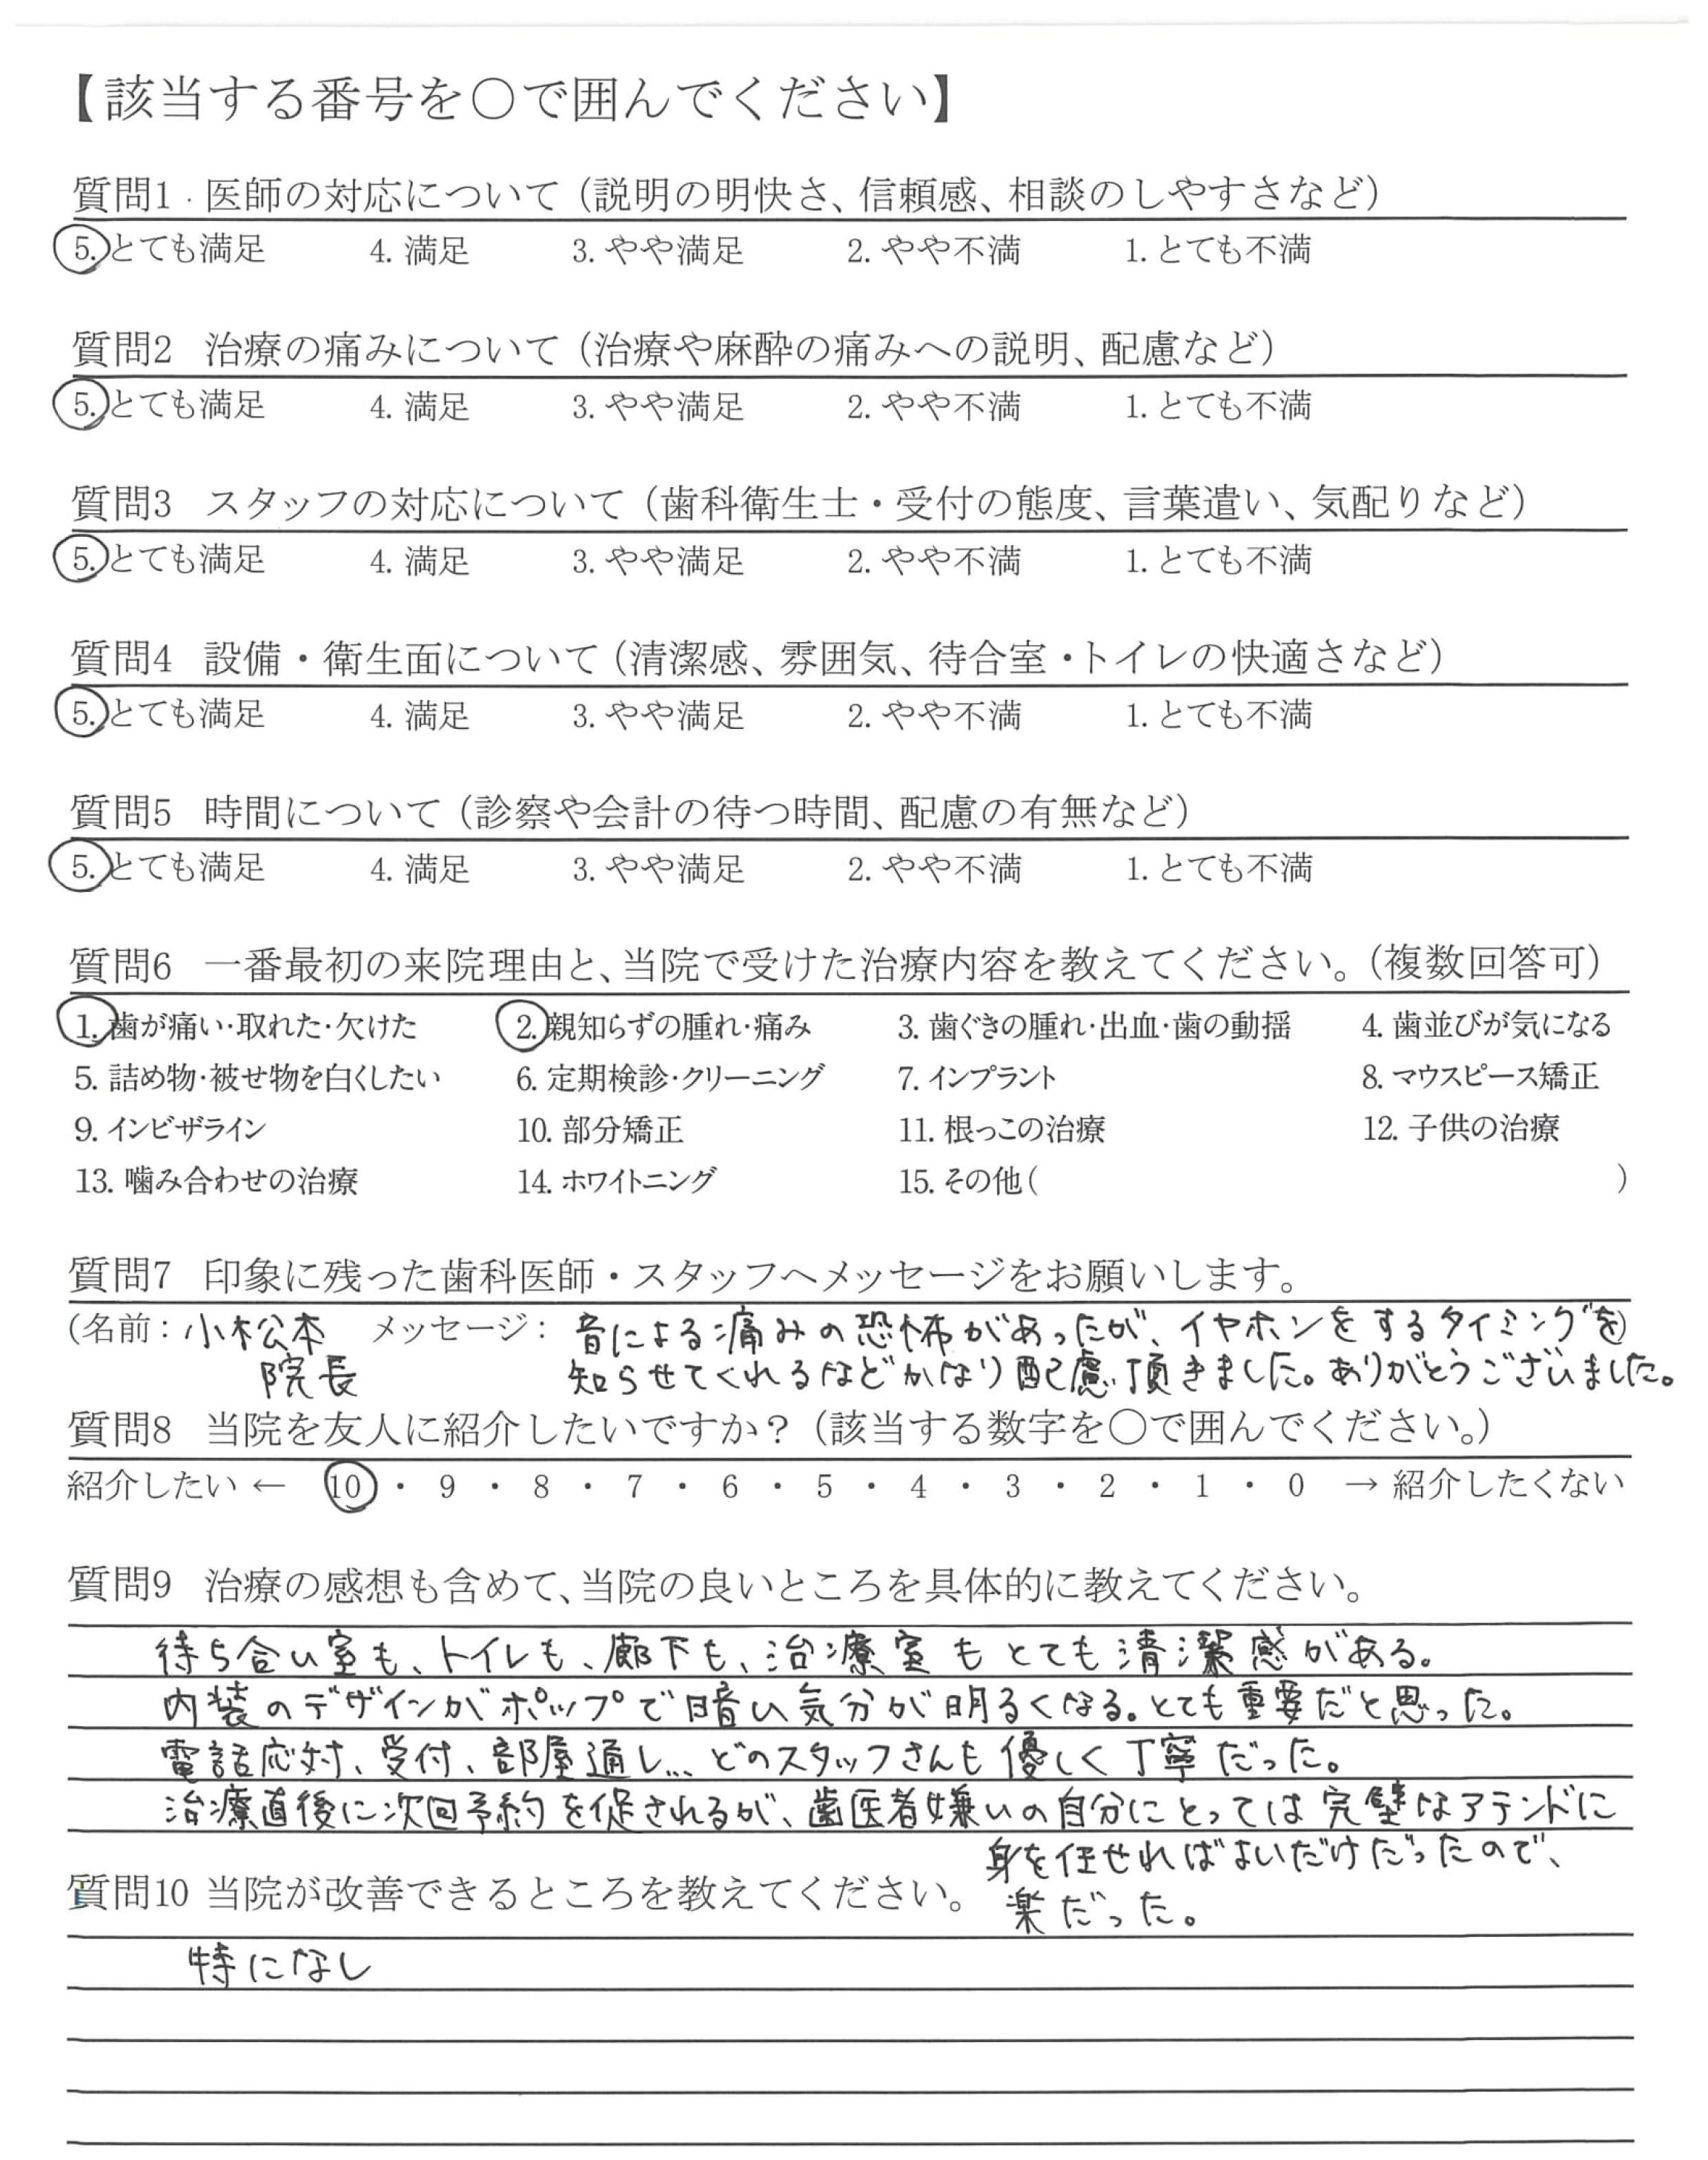 【該当する番号を〇で囲んでください】
質問1 医師の対応について（説明の明快さ、信頼感、相談のしやすさなど）
5. とても満足 4. 満足 3. やや満足 2. やや不満 1. とても不満
質問2 治療の痛みについて（治療や麻酔の痛みへの説明、配慮など）
5. とても満足 4. 満足 3. やや満足 2. やや不満 1. とても不満
質問3 スタッフの対応について（歯科衛生士・受付の態度、言葉遣い、気配りなど）
5. とても満足 4. 満足 3. やや満足 2. やや不満 1. とても不満
質問4 設備・衛生面について（清潔感、雰囲気、待合室・トイレの快適さなど）
5. とても満足 4. 満足 3. やや満足 2. やや不満 1. とても不満
質問5 時間について（診察や会計の待つ時間、配慮の有無など）
5. とても満足 4. 満足 3. やや満足 2. やや不満 1. とても不満
質問6 一番最初の来院理由と、当院で受けた治療内容を教えてください。（複数回答可）
1. 歯が痛い・取れた・欠けた 2. 親知らずの腫れ・痛み 3. 歯ぐきの腫れ・出血・歯の動揺 4. 歯並びが気になる
5. 詰め物・被せ物を白くしたい 6. 定期検診・クリーニング 7. インプラント 8. マウスピース矯正
9. インビザライン 10. 部分矯正 11. 根っこの治療 12. 子供の治療
13. 噛み合わせの治療 14. ホワイトニング 15. その他（ ）
質問7 印象に残った歯科医師・スタッフへメッセージをお願いします。
（名前：小松本 メッセージ：音による痛みの恐怖があったが、イヤホンをするタイミングを）
院長 知らせてくれるなどかなり配慮頂きました。ありがとうございました。
質問8 当院を友人に紹介したいですか？（該当する数字を〇で囲んでください。）
紹介したい ← 10 ・ 9 ・ 8 ・ 7 ・ 6 ・ 5 ・ 4 ・ 3 ・ 2 ・ 1 ・ 0 → 紹介したくない
質問9 治療の感想も含めて、当院の良いところを具体的に教えてください。
待ち合い室も、トイレも、廊下も、治療室もとても清潔感がある。
内装のデザインがポップで暗い気分が明るくなる。とても重要だと思った。
電話応対、受付、部屋通し…どのスタッフさんも優しく丁寧だった。
治療直後に次回予約を促されるが、歯医者嫌いの自分にとっては完璧なアテンドに
身を任せればよいだけだったので、
楽だった。
質問10 当院が改善できるところを教えてください。
特になし